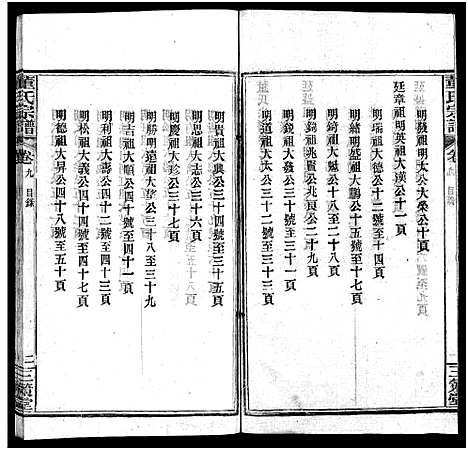 董氏宗譜
卷九 目錄
三策堂
明發祖明太公大榮公十頁
廷章祖明英祖大漢公十一頁
明瑞祖大德公十二號至十四頁
明經祖大盛大鵬公十五號至十七頁
明錡祖大魁公十八至二十八頁
明錦祖兆賢兆盈公二十九頁
明銳祖大發公三十至三十二頁
明道祖大
明貴祖大興公三十四號至三十五頁
明思祖大志公三十六頁
明慶祖大珍公三十七頁
明勝明遠祖大擎公三十八至三十九
明吉祖大順公四十號至四十一頁
明利祖大壽公四十二號至四十三頁
明松祖大義公四十四號至四十七頁
明德祖大昇公四十八號至五十頁
董氏宗譜
卷九 目錄
二三策堂